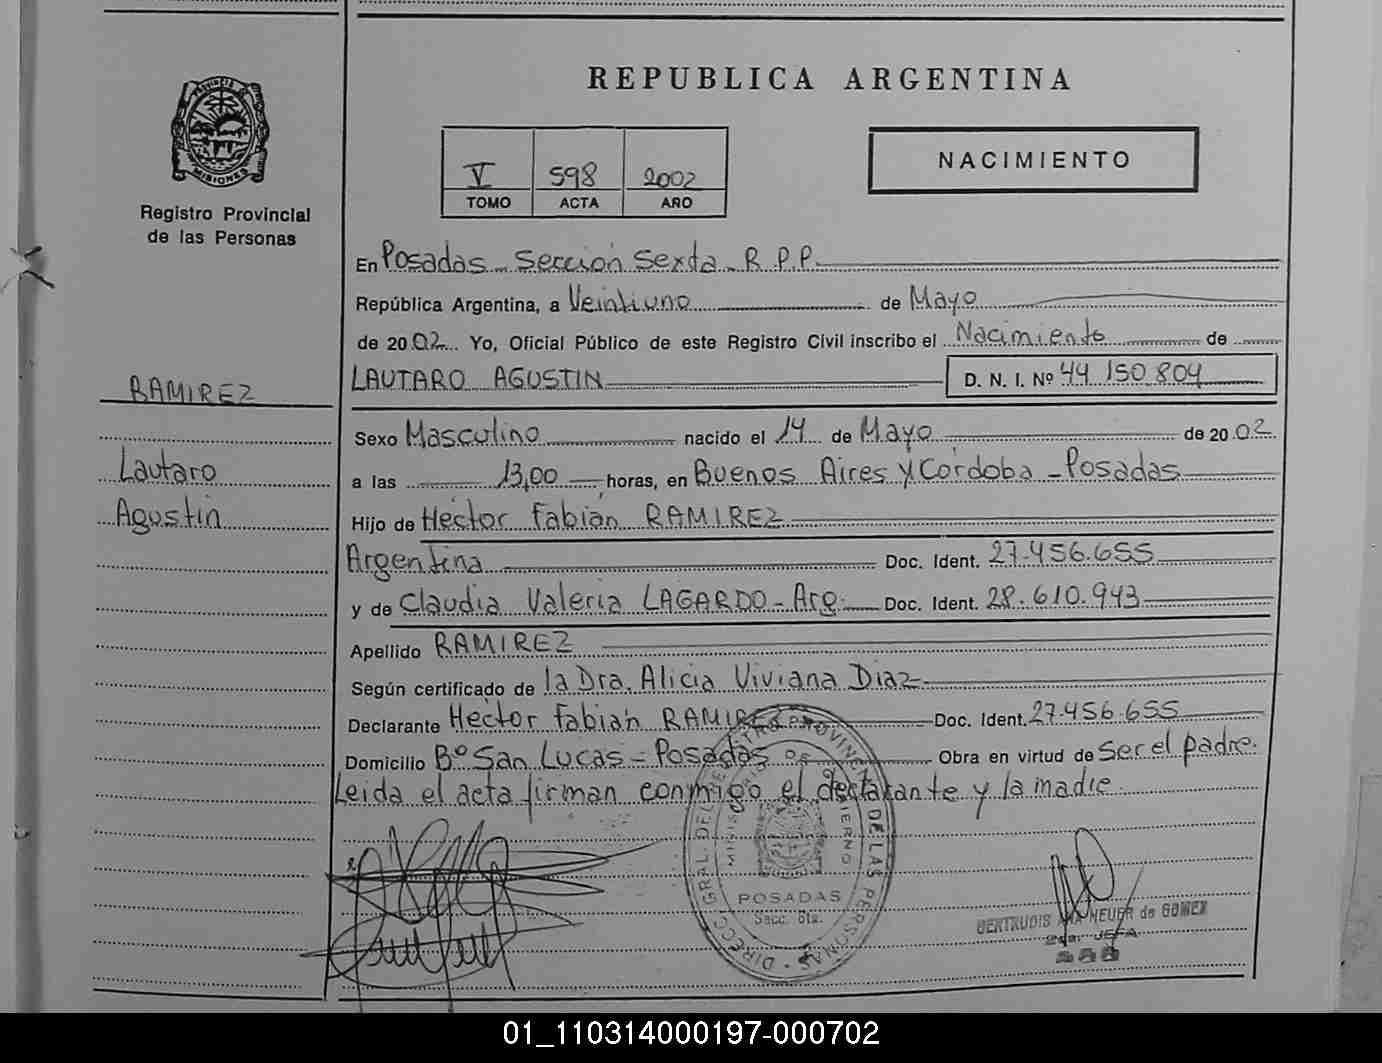 REPUBLICA ARGENTINA
PROVINCIA DE
MISIONES
Registro Provincial
de las Personas
V 598 2002
TOMO ACTA AÑO
NACIMIENTO
En Posadas - Sección Sexta - R.P.P.
República Argentina, a Veintiuno de Mayo
de 2002 Yo, Oficial Público de este Registro Civil inscribo el Nacimiento de
LAUTARO AGUSTIN D. N. I. Nº 44 150 804
RAMIREZ
Lautaro
Agustin
Sexo Masculino nacido el 14 de Mayo de 2002
a las 13,00 horas, en Buenos Aires y Córdoba - Posadas
Hijo de Héctor Fabián RAMIREZ
Argentina Doc. Ident. 27.456.655
y de Claudia Valeria LAGARDO - Arg. Doc. Ident. 28.610.943
Apellido RAMIREZ
Según certificado de la Dra. Alicia Viviana Diaz
Declarante Héctor Fabián RAMIREZ Doc. Ident. 27.456.655
Domicilio Bº San Lucas - Posadas Obra en virtud de Ser el padre.
Leida el acta firman conmigo el declarante y la madre.
DIRECC. GRAL. DEL REGISTRO PROVINCIAL DE LAS PERSONAS
MINISTERIO DE GOBIERNO
POSADAS
Secc. 6ta.
GERTRUDIS ANA NEUER de GOMEZ
JEFA
01_110314000197-000702